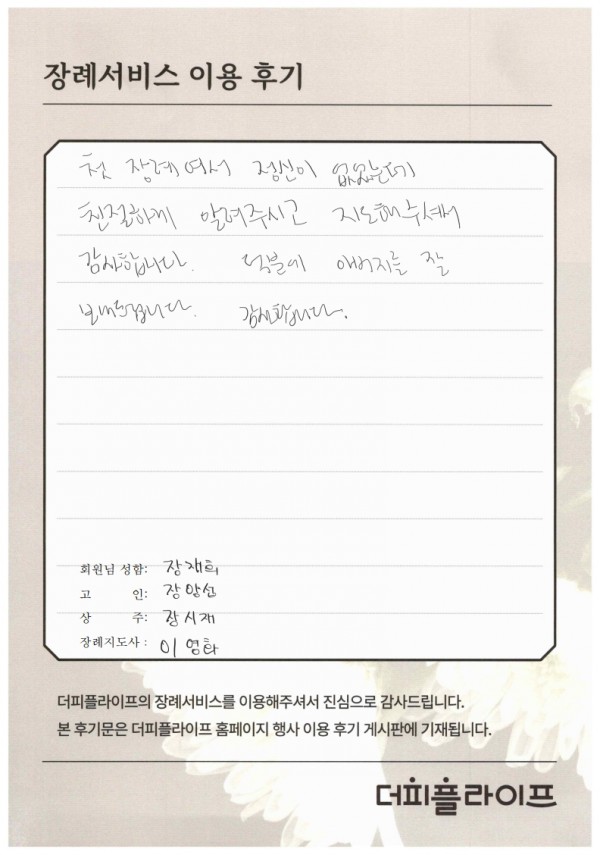 장례서비스 이용 후기
첫 장례여서 정신이 없었는데
친절하게 알려주시고 지도해주셔서
감사합니다. 덕분에 아버지를 잘
보내드립니다. 감사합니다.
회원님 성함: 장재희
고 인: 장암선
상 주: 장시재
장례지도사 : 이영화
더피플라이프의 장례서비스를 이용해주셔서 진심으로 감사드립니다.
본 후기문은 더피플라이프 홈페이지 행사 이용 후기 게시판에 기재됩니다.
더피플라이프